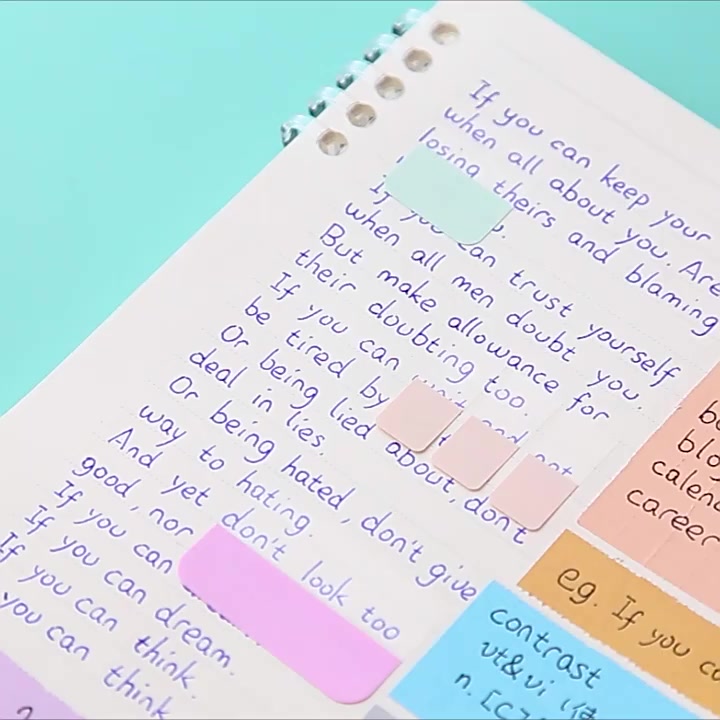 If you can keep your
when all about you. Are
losing theirs and blaming
If you can trust yourself
when all men doubt you.
But make allowance for
their doubting too.
If you can and not
be tired by
Or being lied about, don't
deal in lies.
Or being hated, don't give
way to hating.
And yet don't look too
good, nor
If you can
If you can dream.
If you can think.
you can think
blog
career
eg. If you
contrast
vt&vi
n. [C]